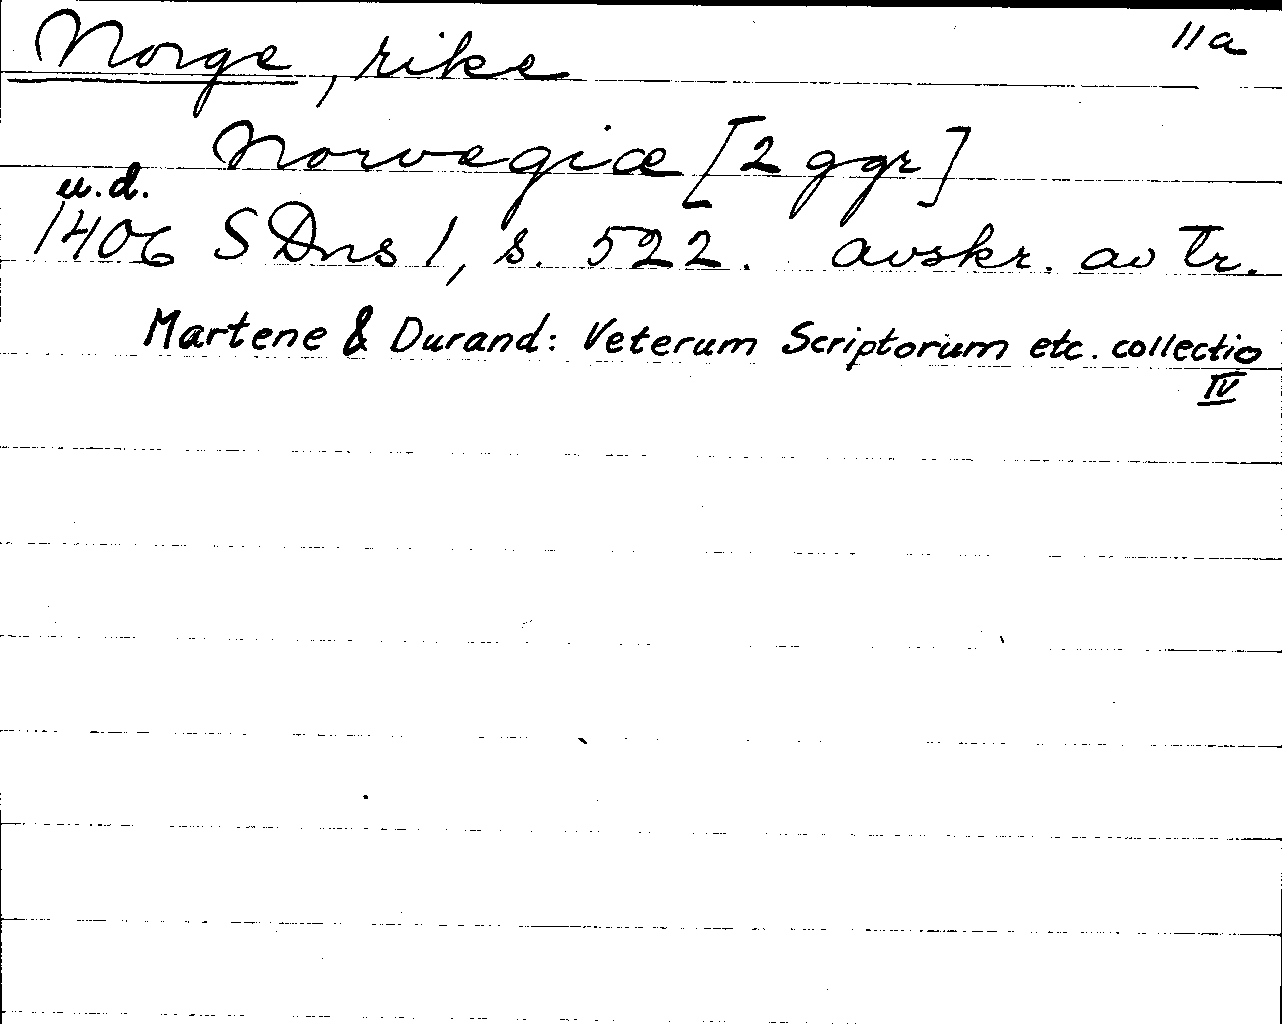 Norge, rike 11a
Norvegiæ [2 ggr]
u.d.
1406 SDns 1, s. 522. avskr. av Tr.
Martene & Durand: Veterum Scriptorum etc. collectio
IV